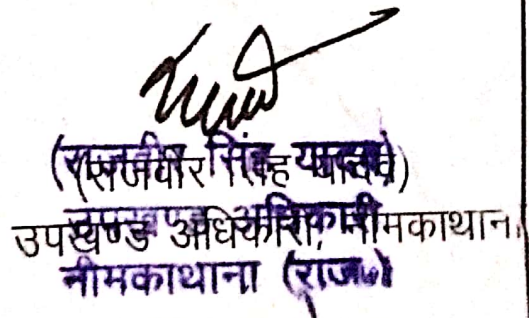 (राजवीर सिंह यादव)
उपखण्ड अधिकारी, नीमकाथाना
नीमकाथाना (राज.)